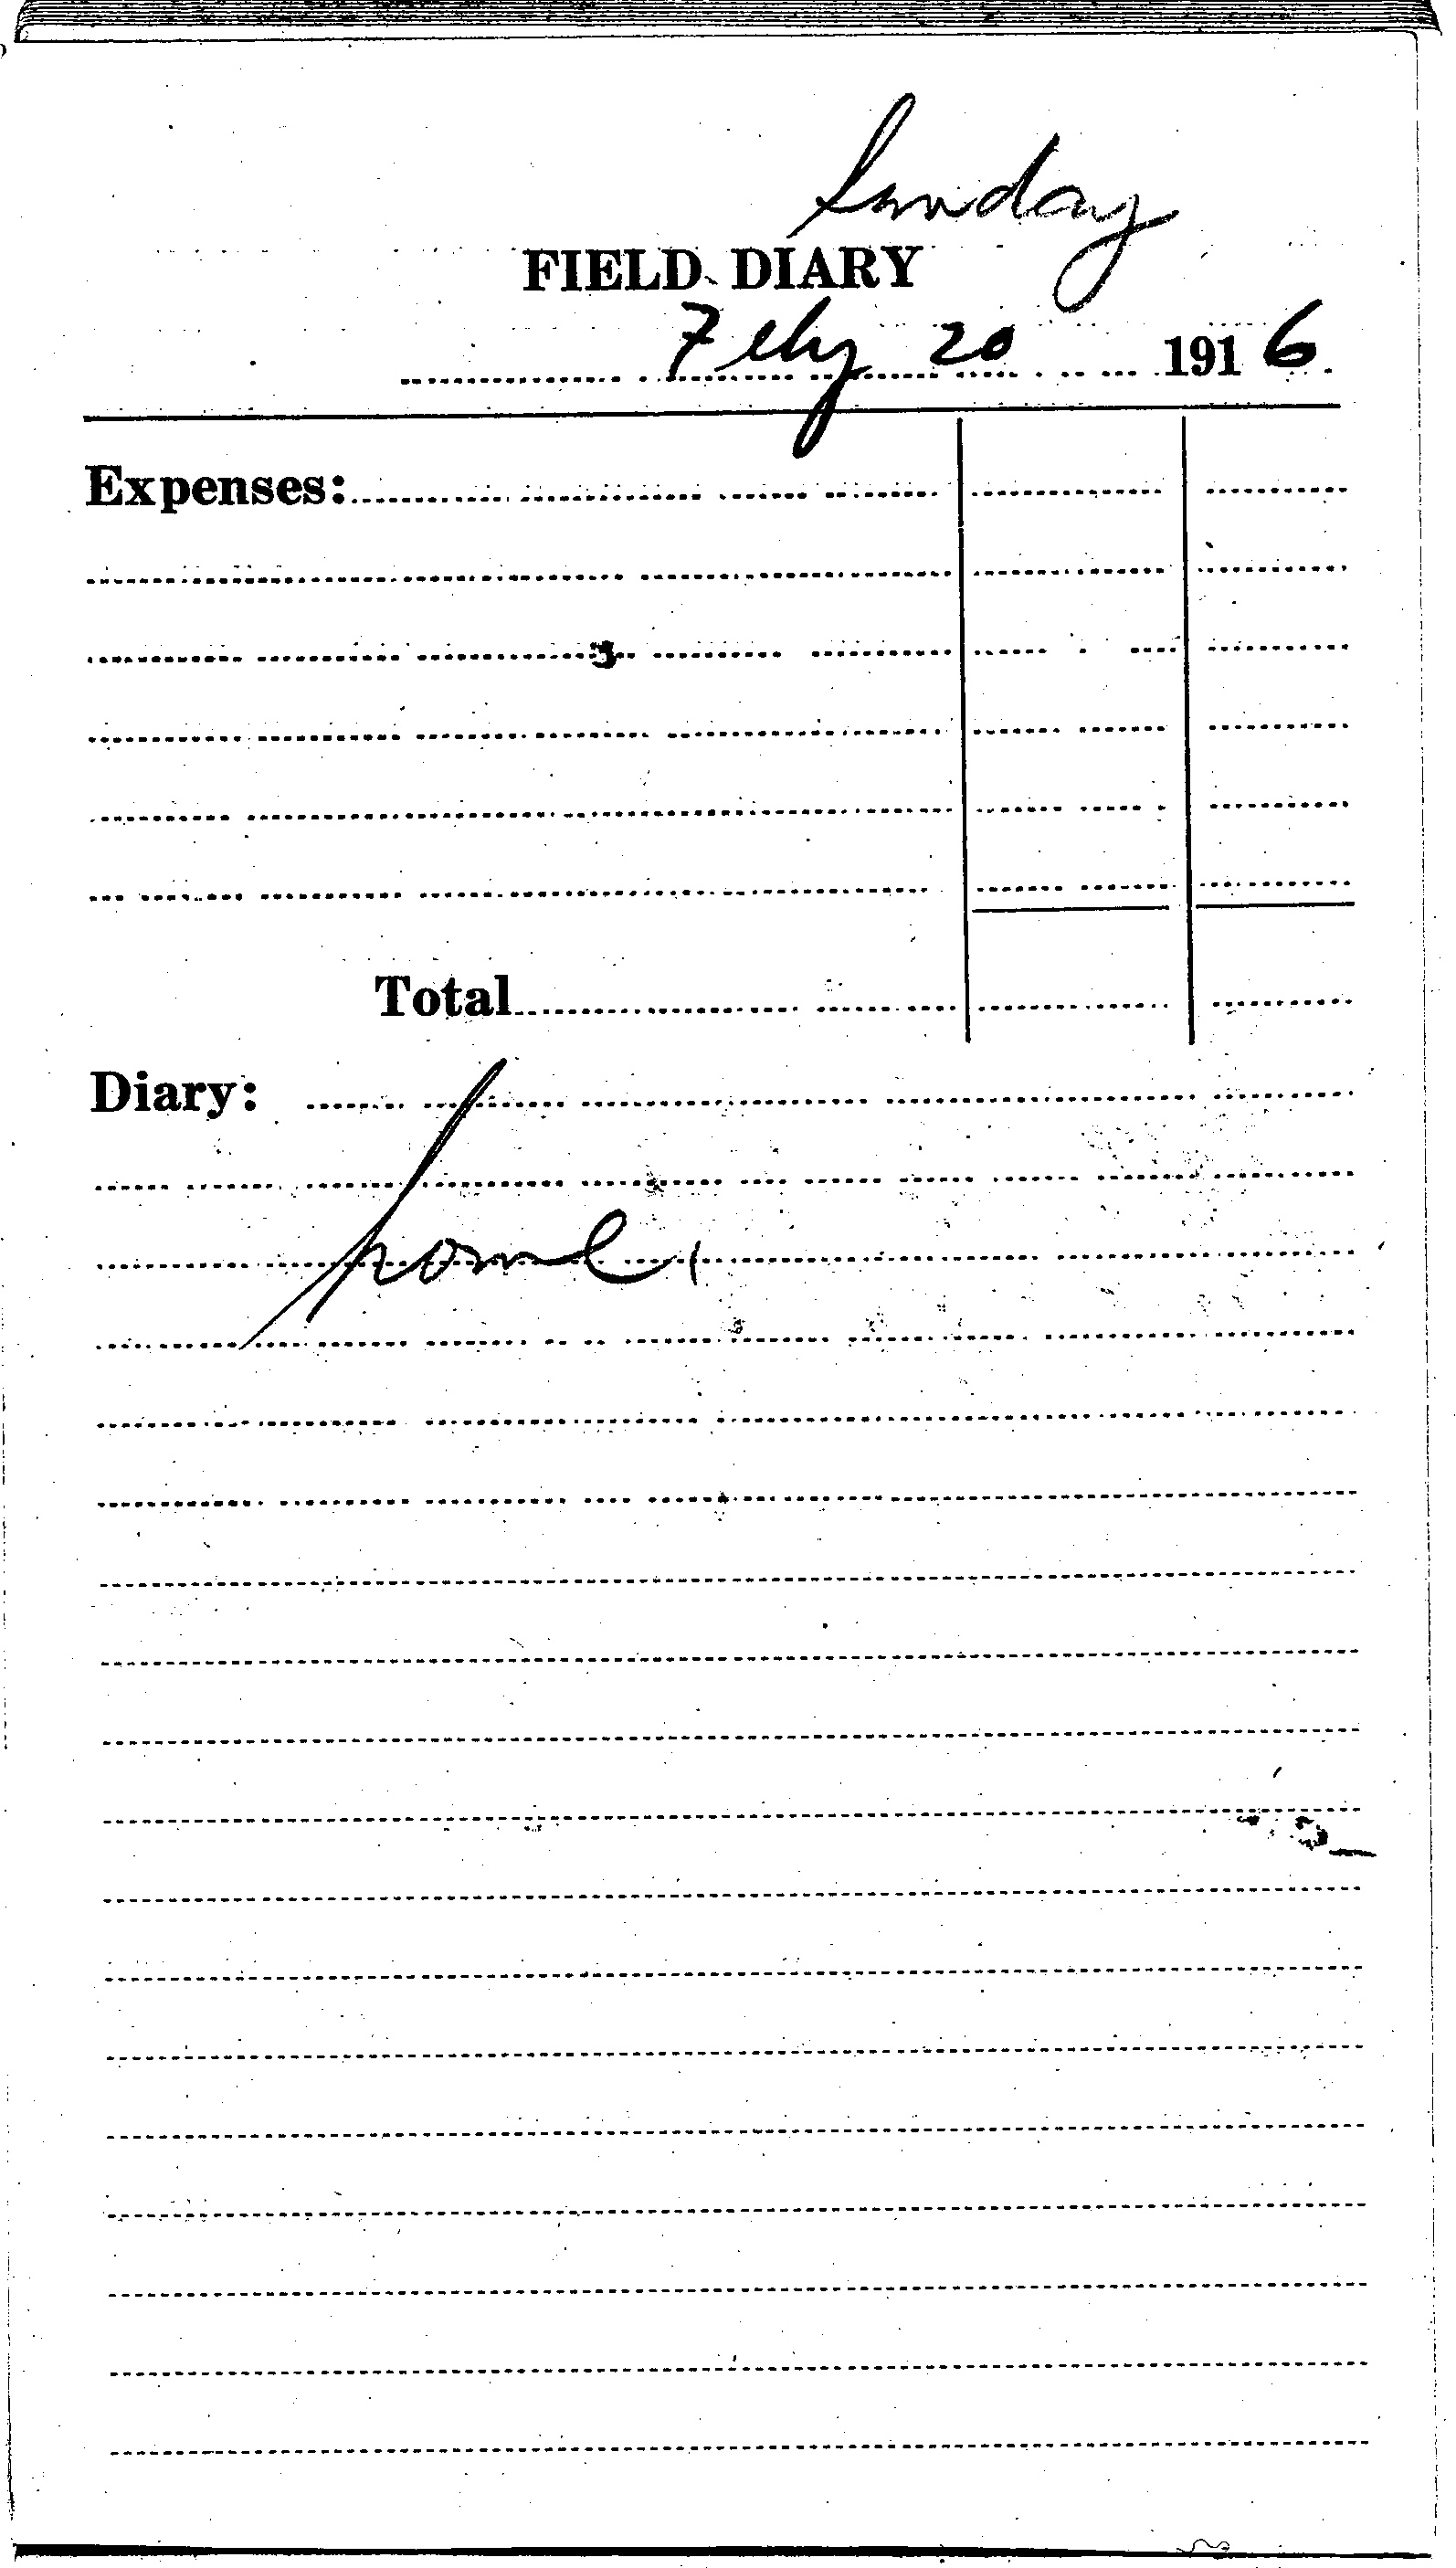 Sunday
FIELD DIARY
Feby 20 1916
Expenses:
Total
Diary:
home.